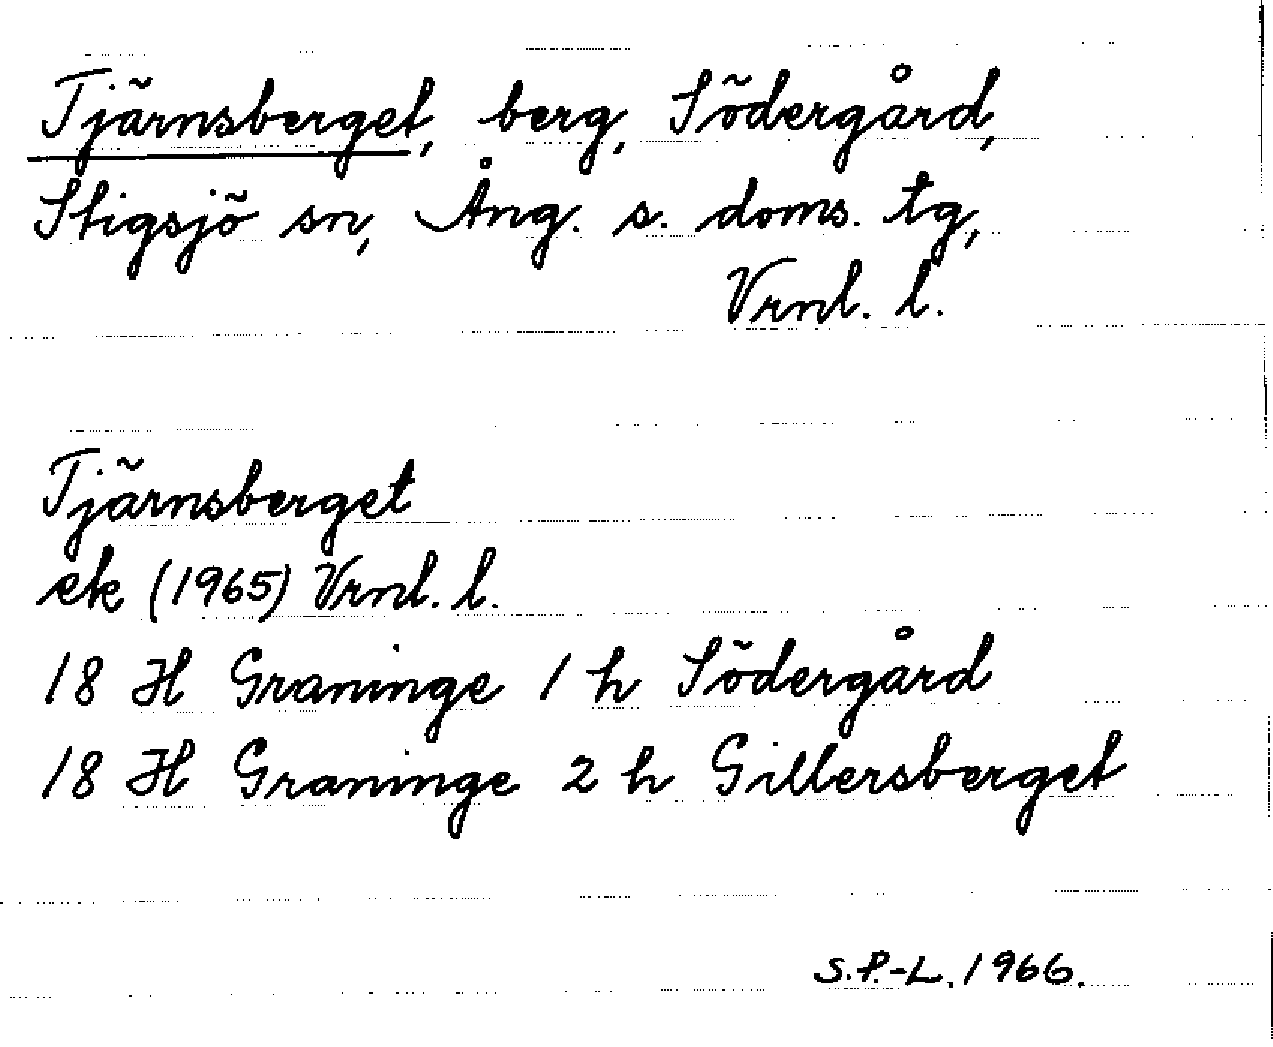 Tjärnsberget, berg, Södergård,
Stigsjö sn, Ång. s. doms. tg,
Vrnl. l.
Tjärnsberget
ek (1965) Vrnl. l.
18 H Graninge 1 h Södergård
18 H Graninge 2 h Gillersberget
S.P.-L. 1966.